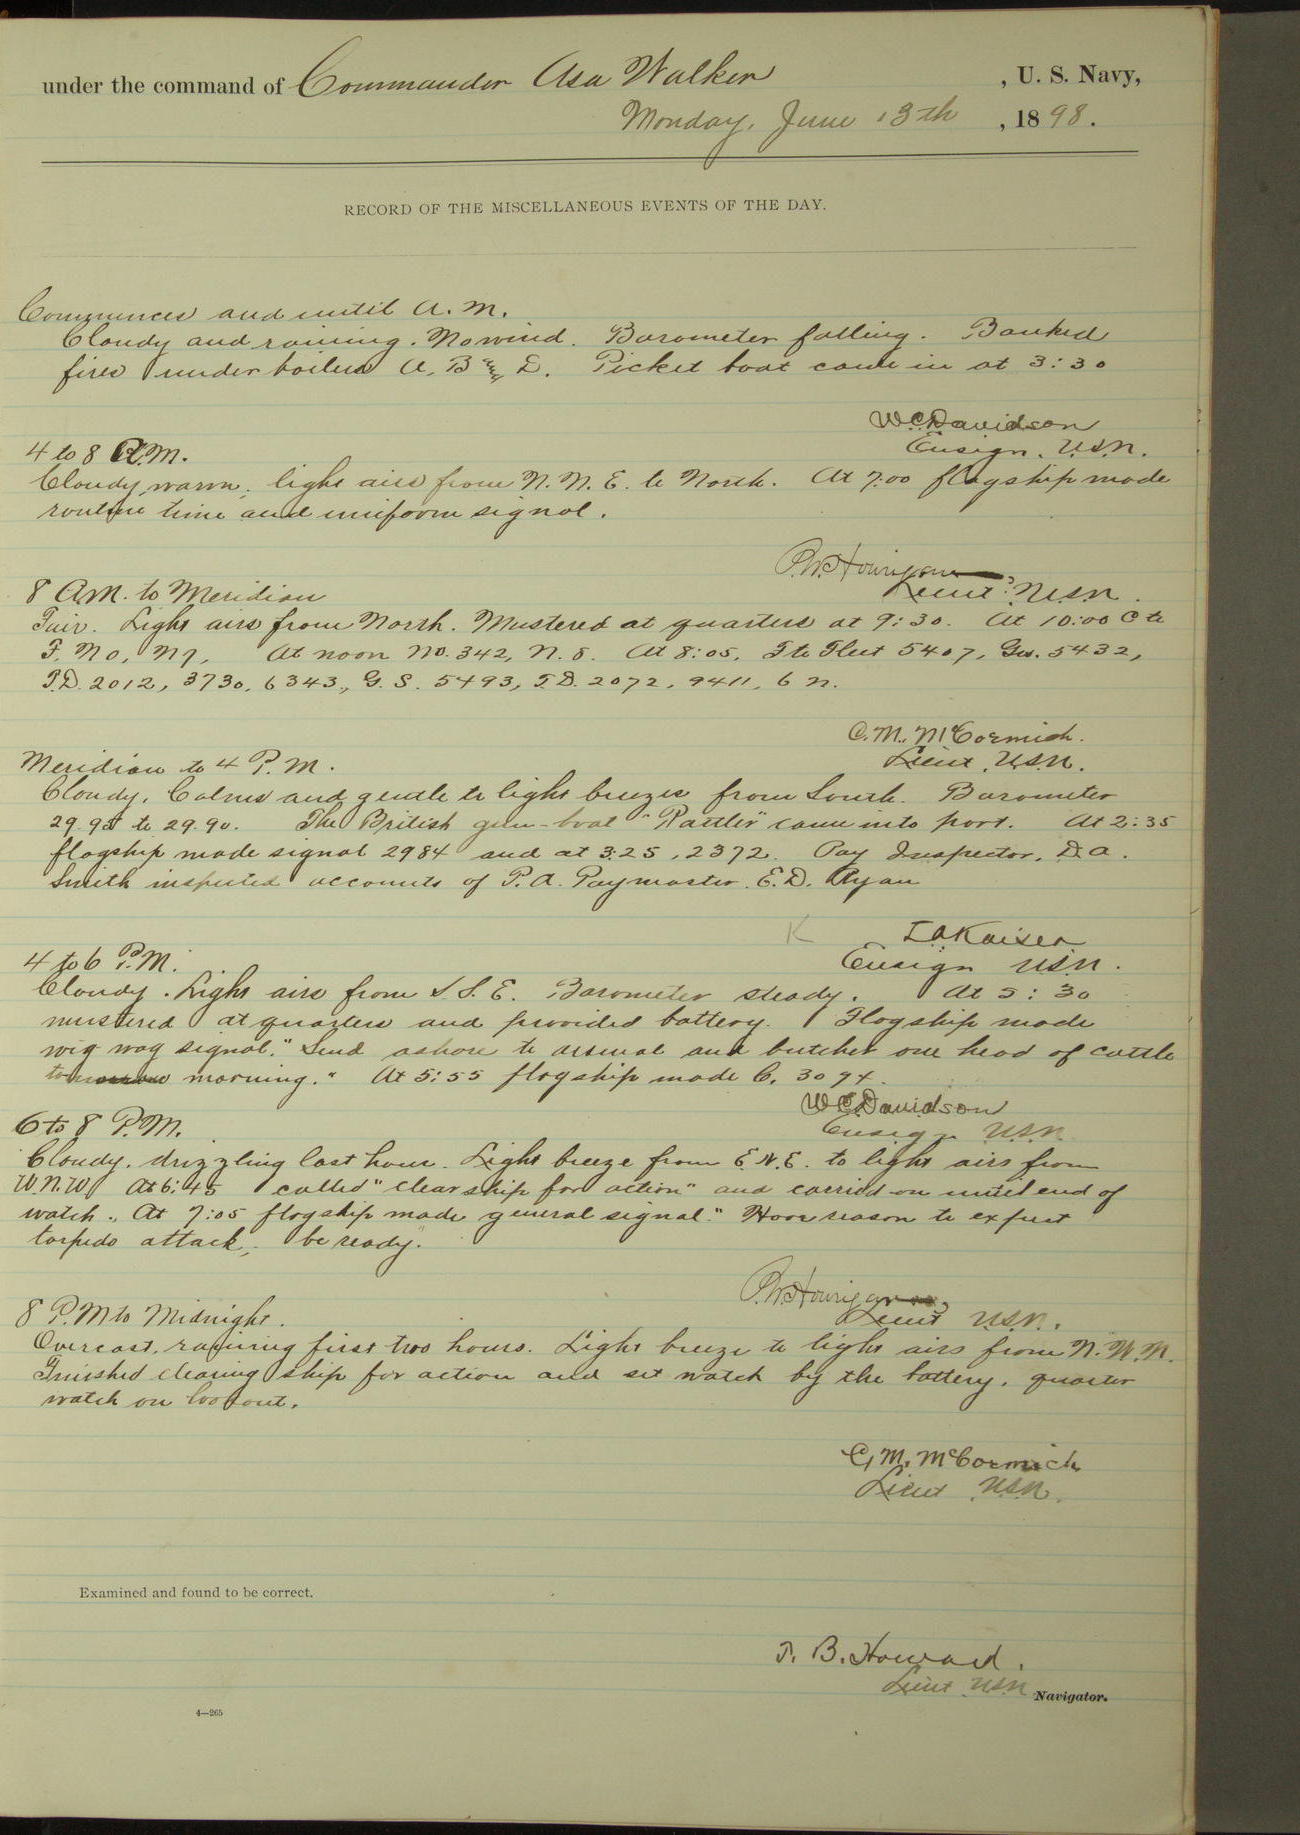 under the command of Commander Asa Walker , U. S. Navy,
Monday, June 13th , 1898.
RECORD OF THE MISCELLANEOUS EVENTS OF THE DAY.
Commences and until A. M.
Cloudy and raining. No wind. Barometer falling. Banked
fires under boilers A, B and D. Picket boat came in at 3:30
W.C. Davidson
Ensign. U.S.N.
4 to 8 A.M.
Cloudy, warm, light airs from N. N. E. to North. At 7:00 flagship made
routine time and uniform signal.
P.W. Hourigan
Lieut. U.S.N.
8 A.M. to Meridian
Fair. Light airs from North. Mustered at quarters at 9:30. At 10:00 C to
F. No, At noon No. 342, N. 8. At 8:05, F to Fleet 5407, Gu. 5432,
T.D. 2012, 3730, 6343, G. S. 5493, T.D. 2072, 9411, 6 n.
C. M. McCormick.
Lieut. U.S.N.
Meridian to 4 P. M.
Cloudy. Calms and gentle to light breezes from South. Barometer
29.95 to 29.90. The British gun-boat "Rattler" came into port. At 2:35
flagship made signal 2984 and at 3:25, 2372. Pay Inspector, D. A.
Smith inspected accounts of P. A. Paymaster. E. D. Ryan
K L A Kaiser
Ensign U.S.N.
4 to 6 P.M.
Cloudy. Light airs from S. S. E. Barometer steady. At 5:30
mustered at quarters and provided battery. Flagship made
wig wag signal, "Send ashore to arsenal and butcher one head of cattle
tomorrow morning." At 5:55 flagship made C. 3074.
W.C. Davidson
Ensign U.S.N.
6 to 8 P.M.
Cloudy, drizzling last hour. Light breeze from E.N.E. to light airs from
W.N.W. At 6:45 called "clear ship for action" and carried on until end of
watch. At 7:05 flagship made general signal. "Have reason to expect
torpedo attack, be ready."
P.W. Hourigan
Lieut U.S.N.
8 P.M to Midnight.
Overcast, raining first two hours. Light breeze to light airs from N. W. N.
Finished clearing ship for action and set watch by the battery, quarter
watch on lookout.
C. M. McCormick
Lieut U.S.N.
Examined and found to be correct.
T. B. Howard.
Lieut U.S.N. Navigator.
4—265